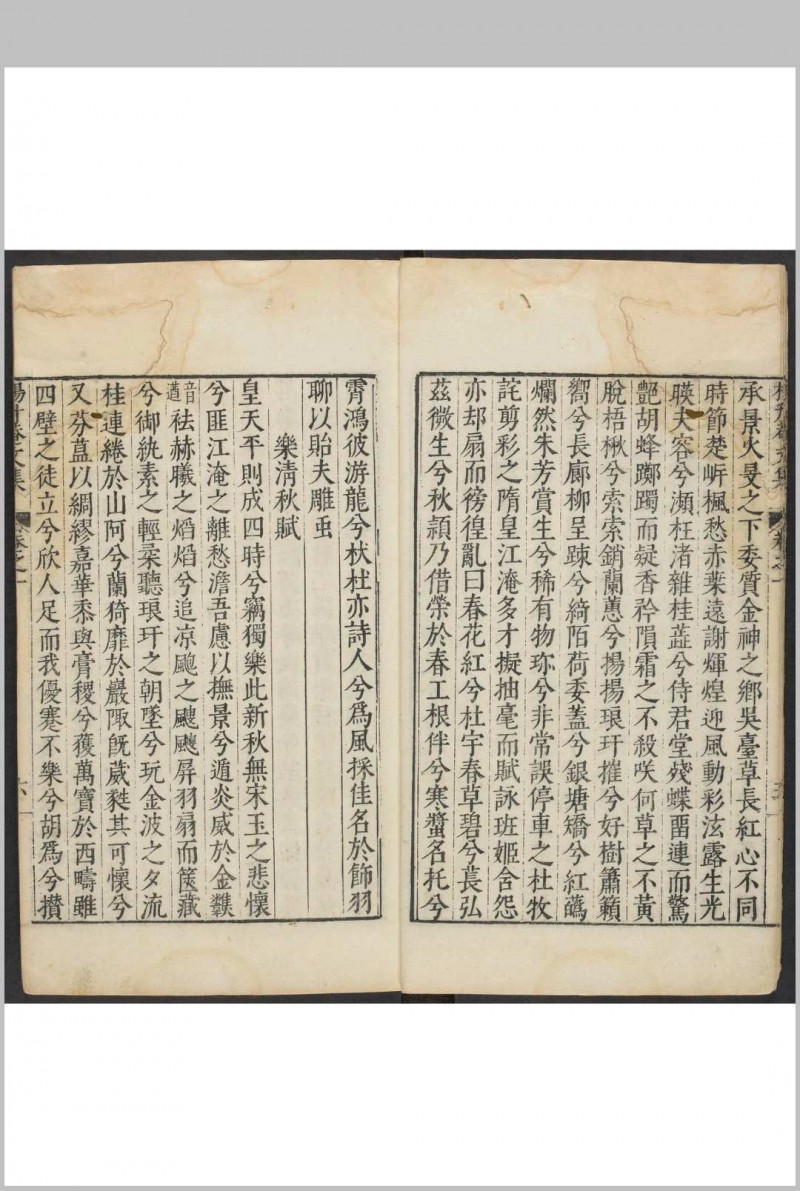 承景火旻之下委質金神之鄉吳臺草長紅心不同
時節楚岍楓愁赤葉遠謝輝煌迎風動彩泫露生光
暎夫容兮瀕枉渚雜桂葢兮侍君堂殘蝶畱連而驚
艷胡蜂躑躅而疑香矜隕霜之不殺咲何草之不黃
脫梧楸兮索索銷蘭蕙兮揚揚琅玕摧兮好樹簫籟
嚮兮長廊柳呈踈兮綺陌荷委蓋兮銀塘矯兮紅蘤
爛然朱芳賞生兮稀有物珎兮非常誤停車之杜牧
詫剪彩之隋皇江淹多才擬抽毫而賦詠班姬含怨
亦却扇而徬徨亂曰春花紅兮杜宇春草碧兮萇弘
茲微生兮秋頴乃借榮於春工根伴兮寒螿名托兮
霄鴻彼游龍兮杕杜亦詩人兮為風採佳名於飾羽
聊以貽夫雕虫
樂清秋賦
皇天平則成四時兮竊獨樂此新秋無宋玉之悲懷
兮匪江淹之離愁澹吾慮以撫景兮遁炎威於金
音
袪赫曦之熖熖兮追凉颸之颸颸屏羽扇而篋藏
兮御紈素之輕柔聽琅玕之朝墜兮玩金波之夕流
桂連綣於山阿兮蘭猗靡於巖陬旣葳蕤其可懷兮
又芬葢以綢繆嘉華黍與膏稷兮獲萬寶於西疇雖
四壁之徒立兮欣人足而我優蹇不樂兮胡為兮攢